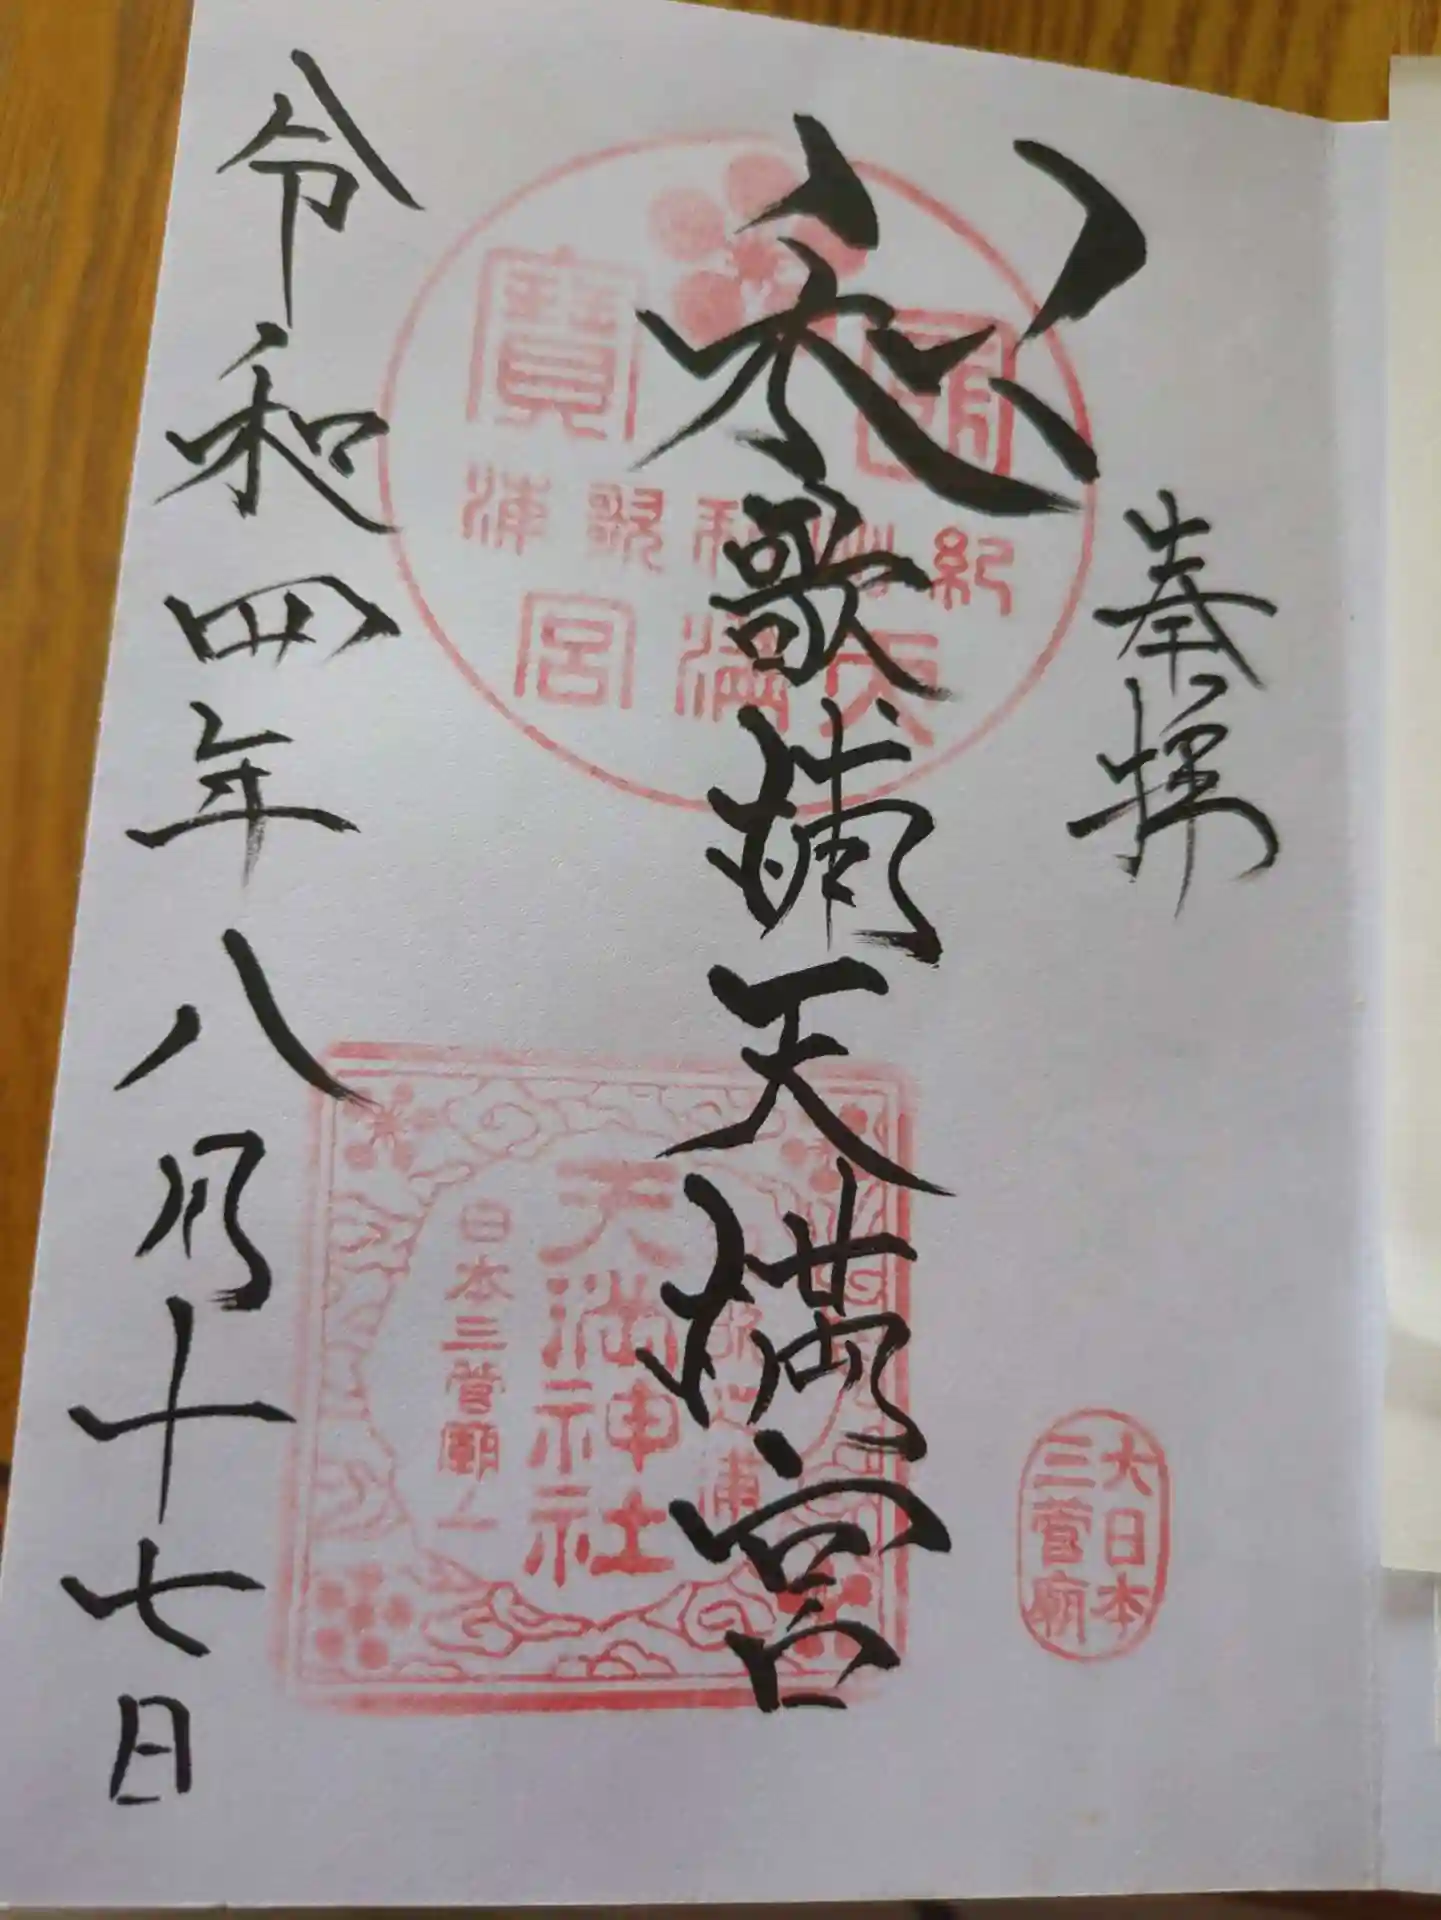 奉拝
和歌浦天満宮
令和四年八月十七日
紀州和歌浦
天満宮
寶
天満神社
日本三菅廟一
大日本
三菅廟